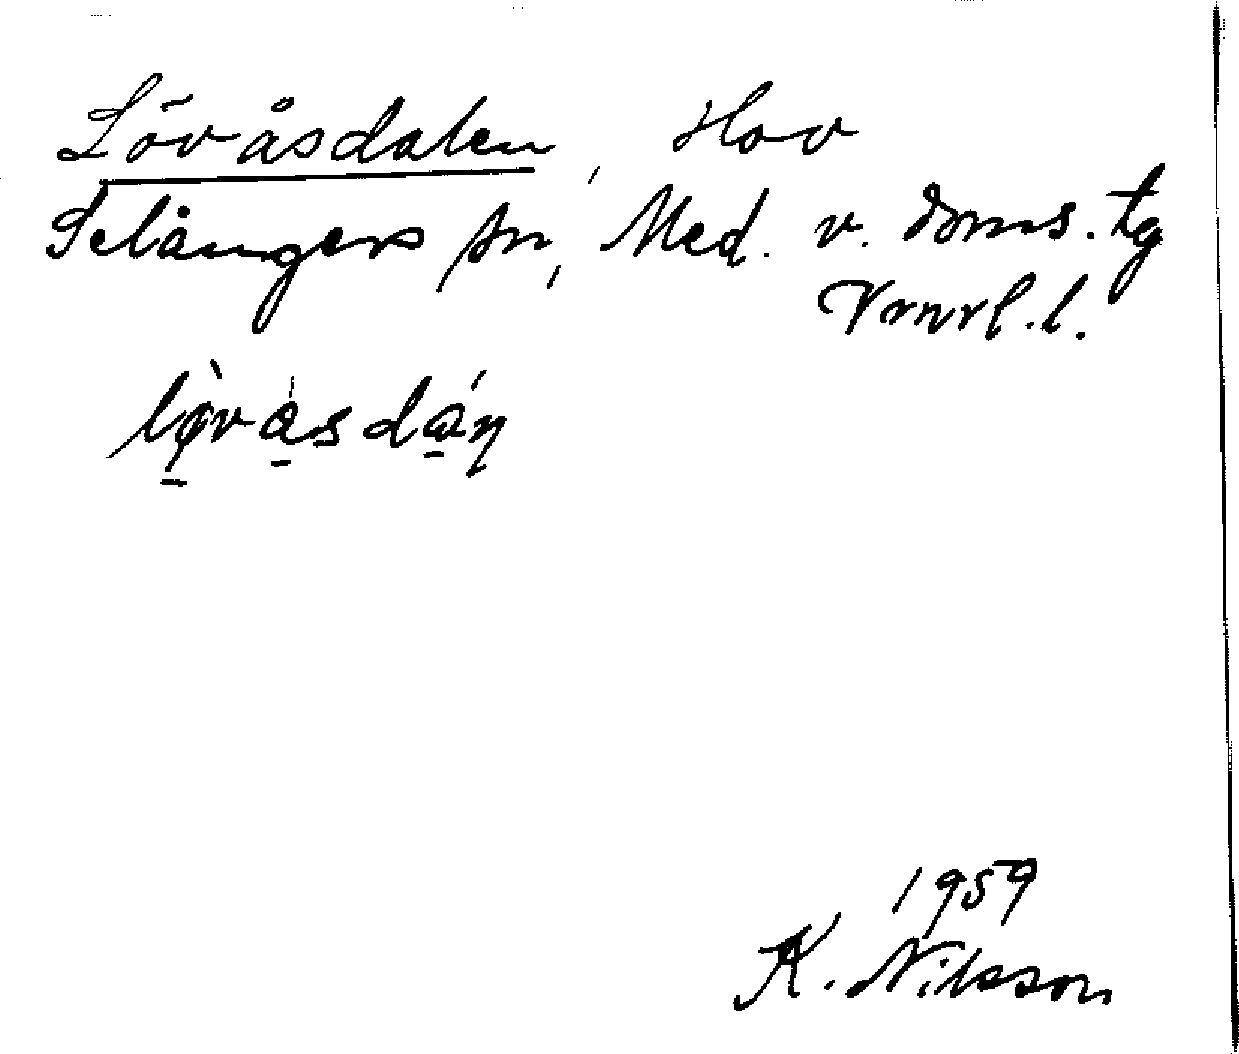 Lövåsdalen, Hov
Selångers sn, Med. v. doms. tg
Vrnrl.l.
lø̀våsdán
1959
K. Nilsson